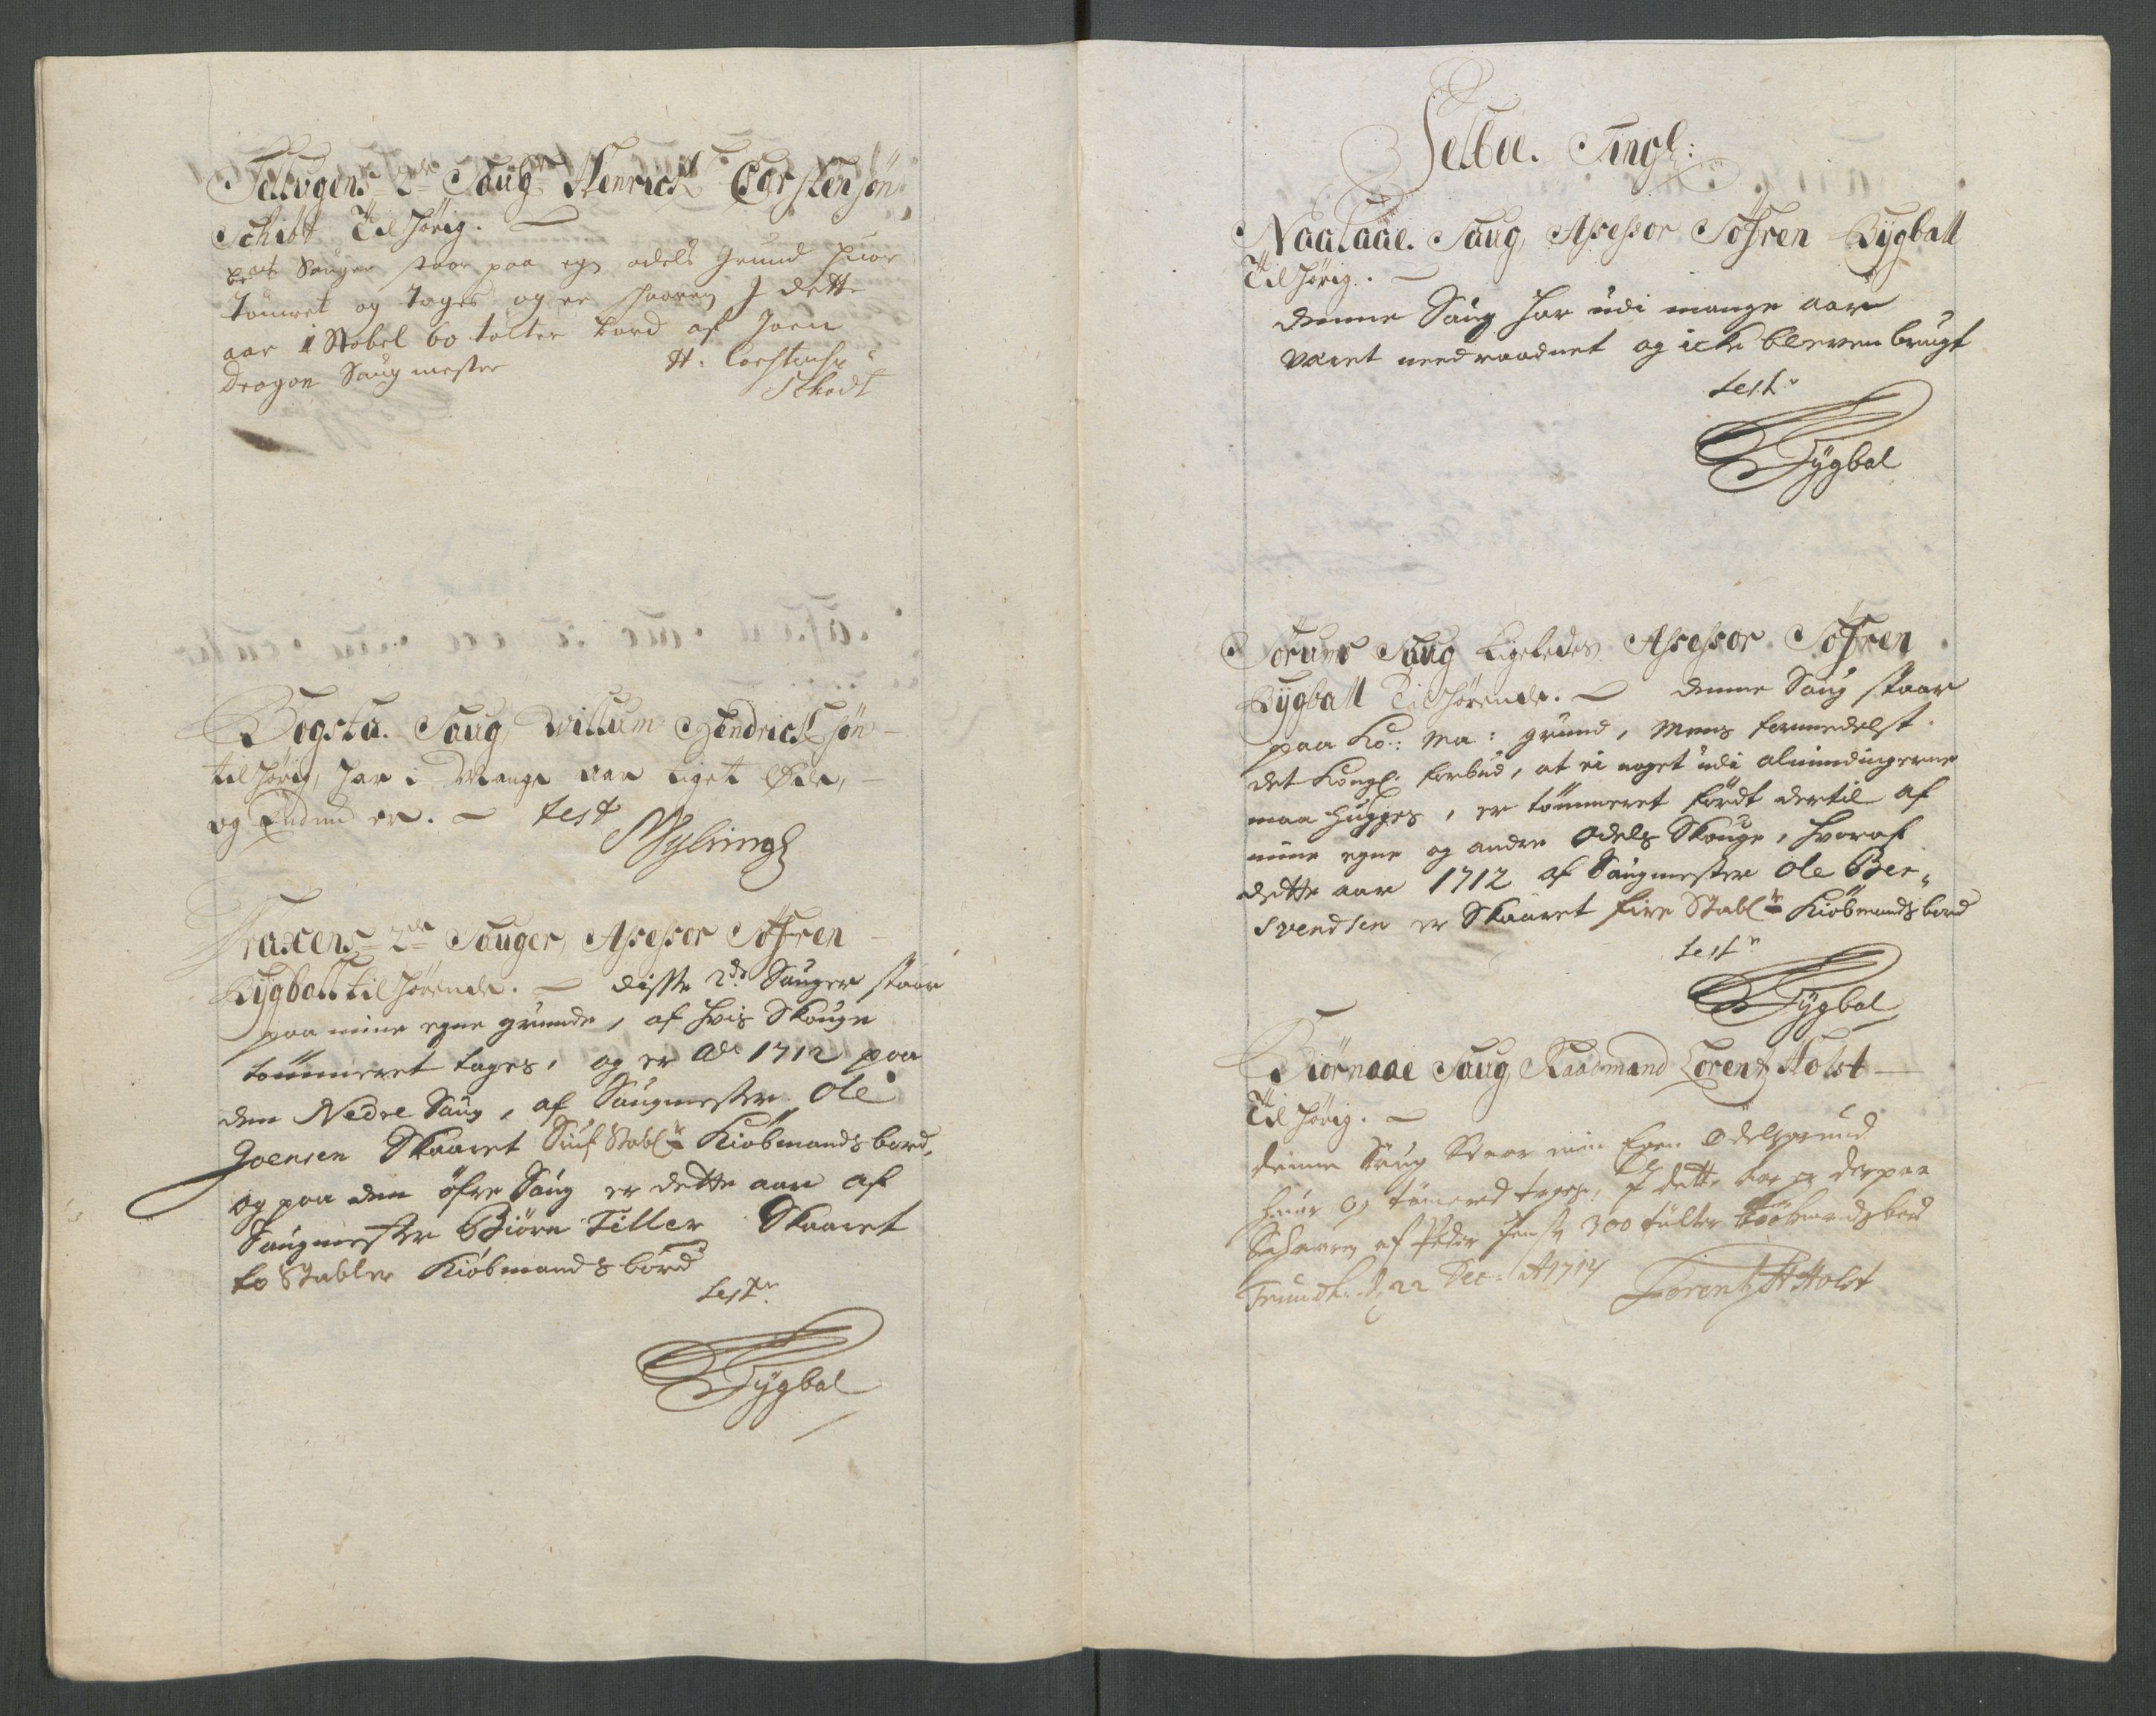 Fættens 2de Saugr Henrick Carstensøn
Schiøt Tilhørig.
bete Sauger staar paa egn odels Grund huor
tømret og tages og er skaaren I dette
aar 1 Stabel 60 tolter bord af Joen
Dragon Saugmester H: Carstensen
Schødt
Bogsta. Saug Willum Hendrichsøn
tilhørig, har i Mange aar liget Øde,
og Endnu er. test
Mÿlringh
Fraxens 2de Sauger, Assessor Søfren
Bÿgball tilhørende. Disse 2de Sauger staar
paa mine egne grunde, af hvis Skouge
tømmeret tages, og er Ao 1712 paa
den Nedre Saug, af Saugmester Ole
Joensen Skaaret Siuf Stablr Kiøbmandsbord,
og paa den öfre Saug er dette aar af
Saugmester Biörn Tiller Skaaret
to Stabler Kiöbmandsbord
testr
SBÿgbal
Selboe. Tingl:
Naalaae. Saug, Assessor Söfren Bÿgball
Tilhørig.
denne Saug har udi mange aar
været needraadnet og icke bleven brugt
testr
SBÿgbal
Sørums Saug Ligeledes Assessor Söfren
Bÿgball Tilhørende. denne Saug staar
paa Ko: Ma: grund, mens formedelst
det Kongl. forbud, at ei noget udi almindingerne
maa hugges, er tømmeret fördt dertil af
mine egne og andre Odels Skouge, hvoraf
dette aar 1712 af Saugmester Ole Ber„
svendsen er Skaaret fire Stablr Kiöbmandsbord
testr
SBÿgbal
Biørnaae Saug, Raadmand Lorentz Holst
Tilhørig.
denne Saug Staar min Egen Odelsgrund
huor og tømered tages, I dette aar er derpaa
Schaaren af Peder Jensen 300 tølter Kiøbmandsbord
Trundh: d 22 Dec: A 1712 Lorentz H Holst